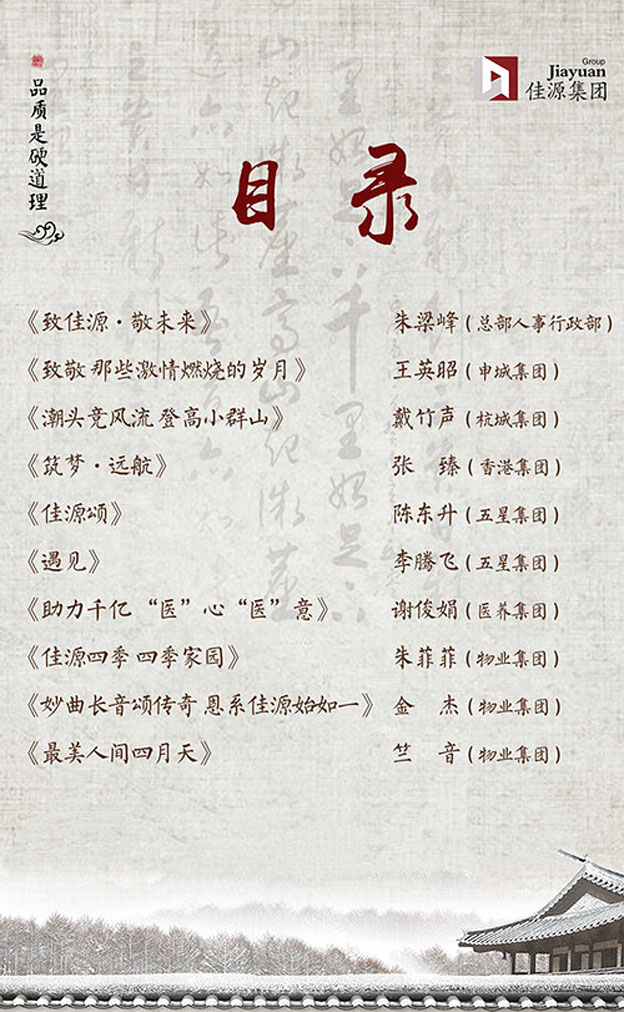 品质是硬道理
Group
Jiayuan
佳源集团
目录
《致佳源·敬未来》 朱梁峰(总部人事行政部)
《致敬 那些激情燃烧的岁月》 王英昭(申城集团)
《潮头竞风流 登高小群山》 戴竹声(杭城集团)
《筑梦·远航》 张 臻(香港集团)
《佳源颂》 陈东升(五星集团)
《遇见》 李腾飞(五星集团)
《助力千亿 “医”心“医”意》 谢俊娟(医养集团)
《佳源四季 四季家园》 朱菲菲(物业集团)
《妙曲长音颂传奇 恩系佳源始如一》 金 杰(物业集团)
《最美人间四月天》 竺 音(物业集团)